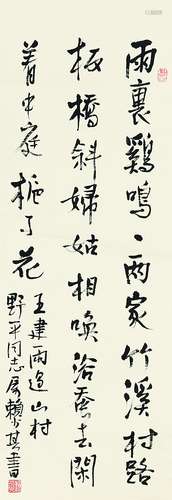 雨裏鷄鳴一兩家竹溪村路
板橋斜婦姑相喚浴蚕去閑
着中庭梔子花
王建雨過山村
野平同志屬賴少其書